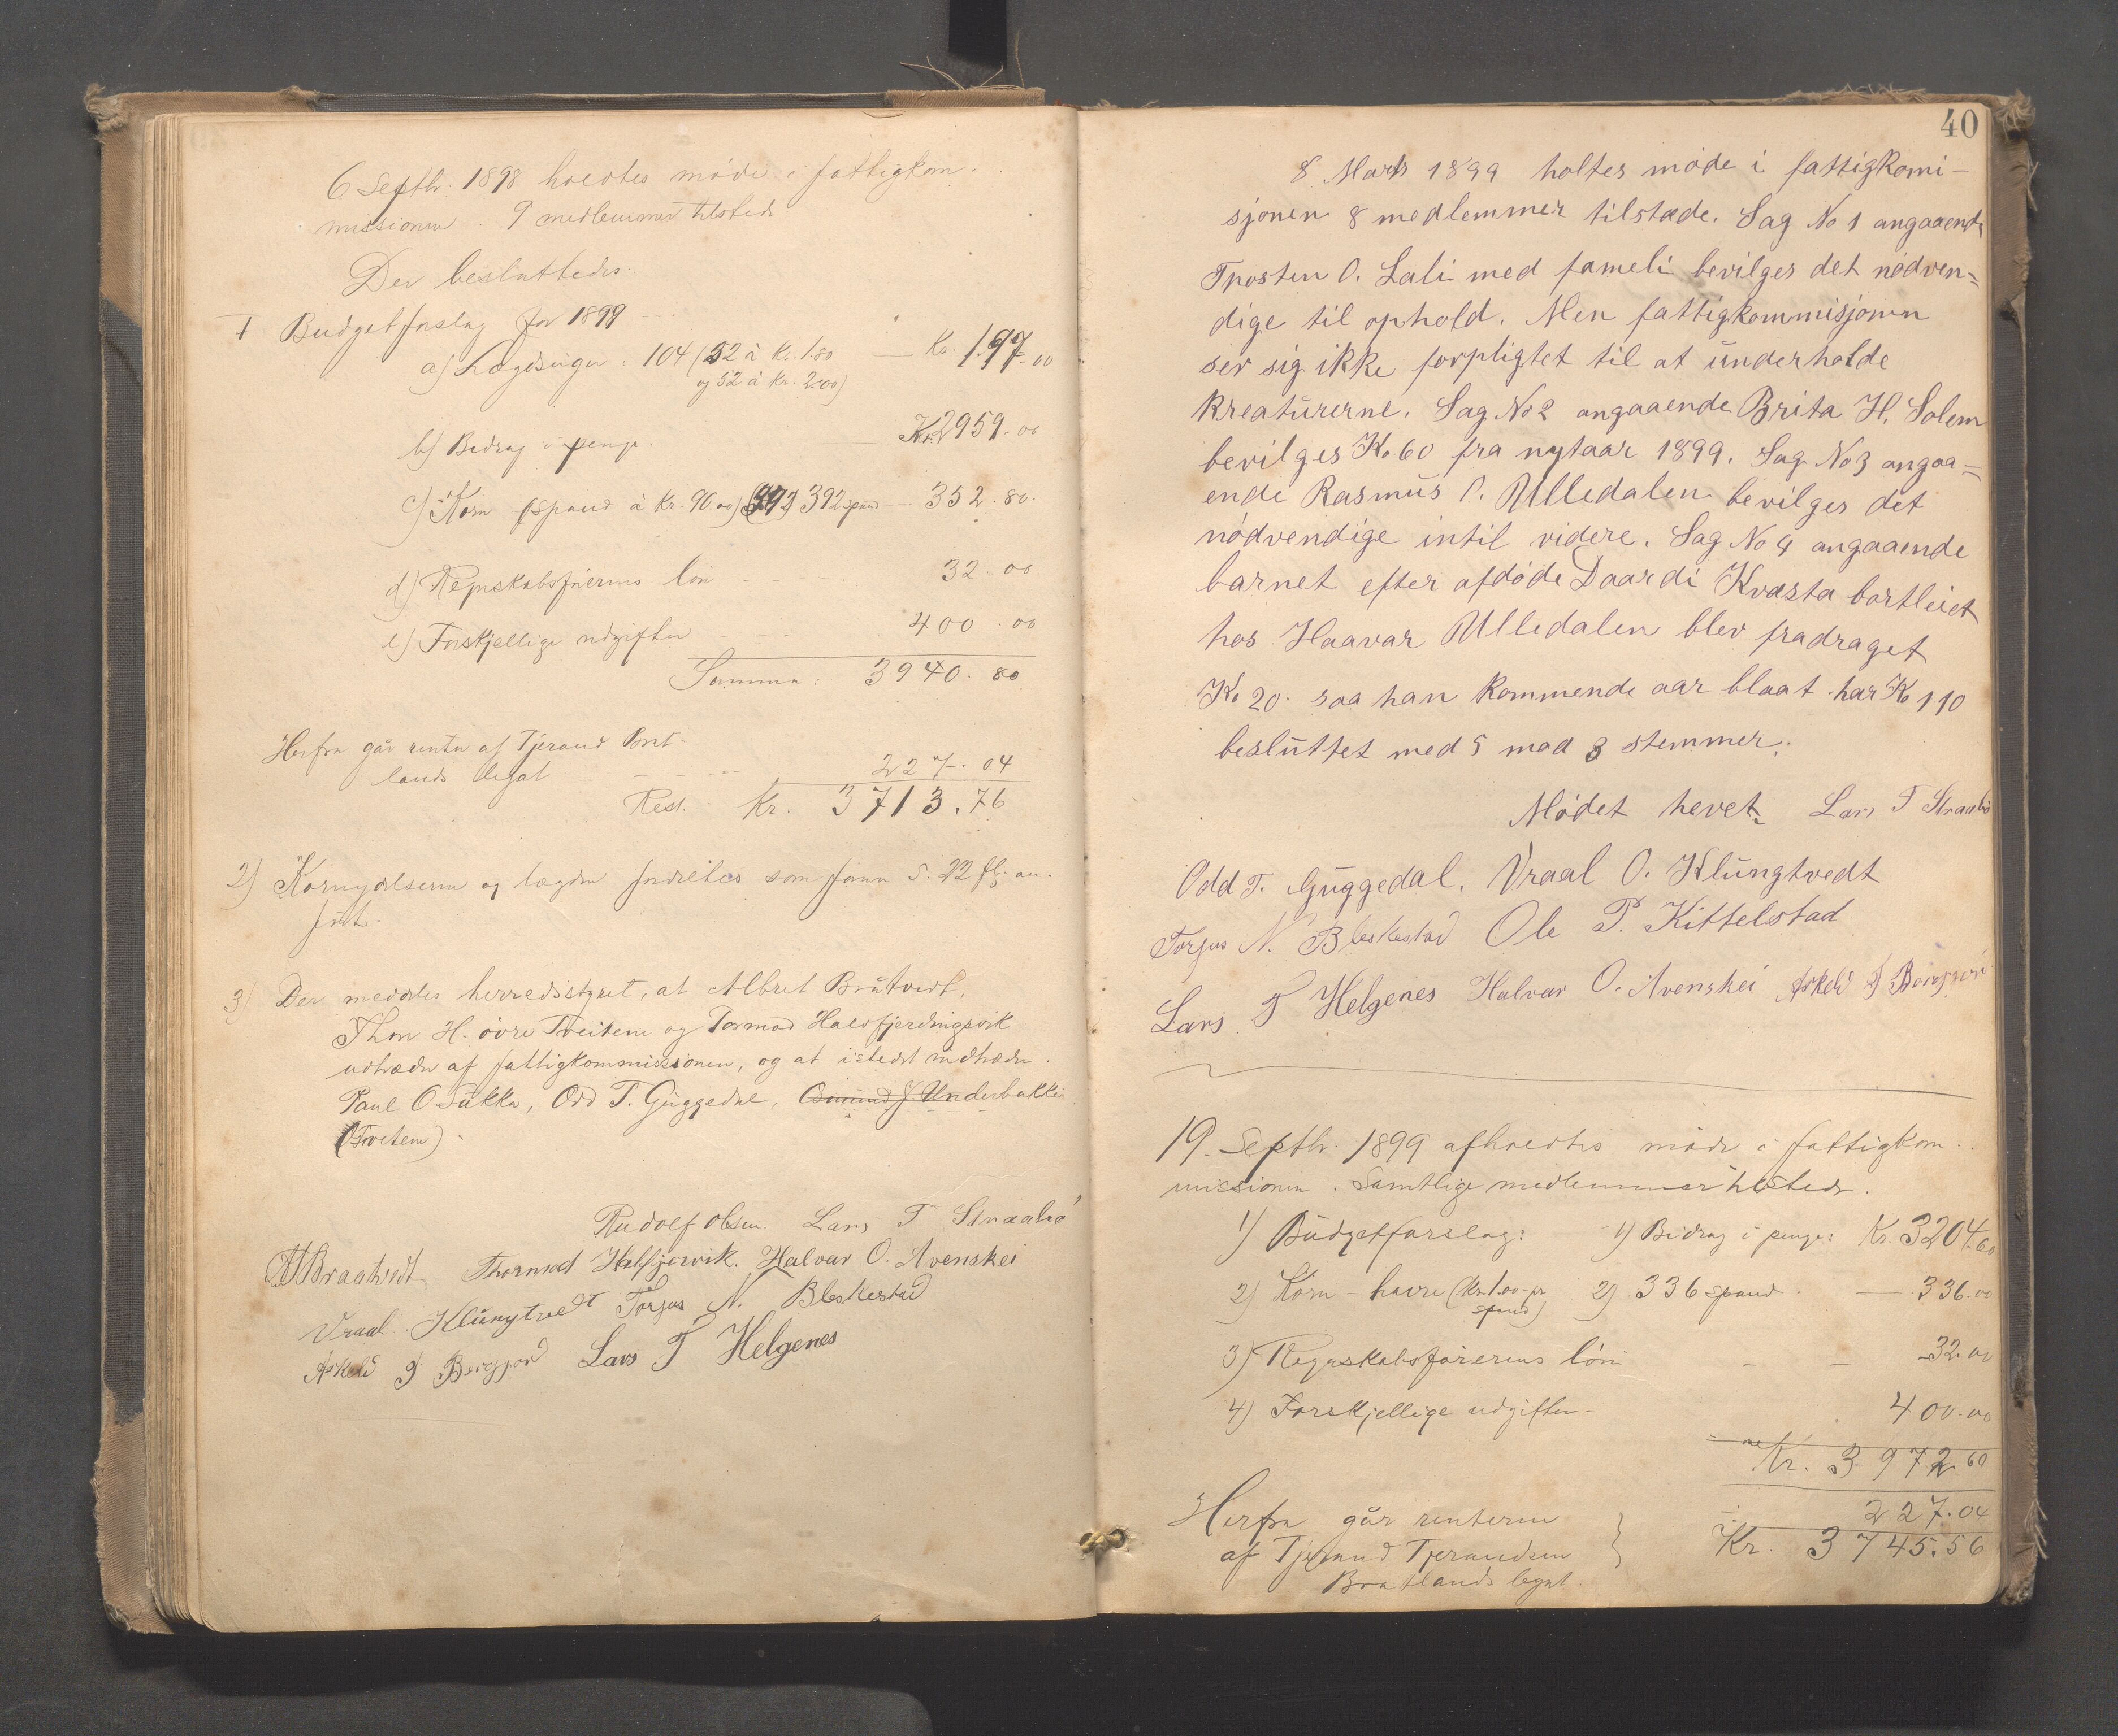 6 Septbr. 1898 holdtes møde i fattigkom-
missionen. 9 medlemmer tilstede
Der besluttedes:
1 Budgetforslag for 1899
a) Lægdsuger: 104 (52 à Kr. 1.80 — Kr. 197.00
og 52 à Kr. 2.00)
b) Bidrag i penge. Kr. 2959.00
c) Korn - (spand à Kr. 90.00) 392 spand — 352.80.
d) Regnskabsførerens løn 32.00
e) Forskjellige udgifter 400.00
Summa: 3940.80
Herfra går renter af Tjerand Brat-
lands legat 227.04
Rest. Kr. 3713.76
2) Kornydelserne og lægden fordeltes som form S. 22 flg. an-
ført.
3) Der meddeles herredsstyret, at Albret Bråtvedt,
Thor H. øvre Tveitene og Tormod Halvfjerdingsvik
udtræder af fattigkommissionen, og at istedet indtræder
Paul O Sukka, Odd T. Guggedal, Osmund J. Underbakke
(Tveiten).
Rudolf Olsen. Lars T Straabø
A Braatvedt Thormod Halfjervik. Halvar O. Avenskei
Vraal Klungtvedt Torjus N. Bleskestad
Askeld T Bergjord Lars T Helgenes
40
8 Marts 1899 holtes møde i fattigkomi-
sjonen 8 medlemmer tilstæde. Sag No 1 angaaende
Tposten O. Lali med fameli bevilges det nødven=
dige til ophold. Men fattigkommisjonen
ser sig ikke forpligtet til at underholde
Kreaturerne. Sag No 2 angaaende Brita H. Solem
bevilges Kr 60 fra nytaar 1899. Sag No 3 angaa=
ende Rasmus O. Ulledalen bevilges det
nødvendige intil videre. Sag No 4 angaaende
barnet efter afdøde Daardi Kvasta bortleiet
hos Haavar Ulledalen blev fradraget
Kr 20. saa han kommende aar blaat har Kr 110
besluttet med 5 mod 3 stemmer.
Mødet hevet. Lars T Straabø
Odd T. Guggedal. Vraal O. Klungtvedt
Torjus N. Bleskestad Ole P. Kittelstad
Lars T Helgenes Halvar O. Avenskei Askeld T Bergjord
19. Septbr. 1899 afholdtes møde i fattigkom-
missionen. Samtlige medlemmer tilstede.
1) Budgetforslag: 1) Bidrag i penge: Kr. 3204.60
2) Korn - havre (Kr. 1.00 pr 2) 336 spand — 336.00
spand)
3) Regnskabsførerens løn — — 32.00
4) Forskjellige udgifter - 400.00
Kr. 3972.60
Herfra går renterne 227.04
af Tjerand Tjerandsen Kr. 3745.56
Bratlands legat.